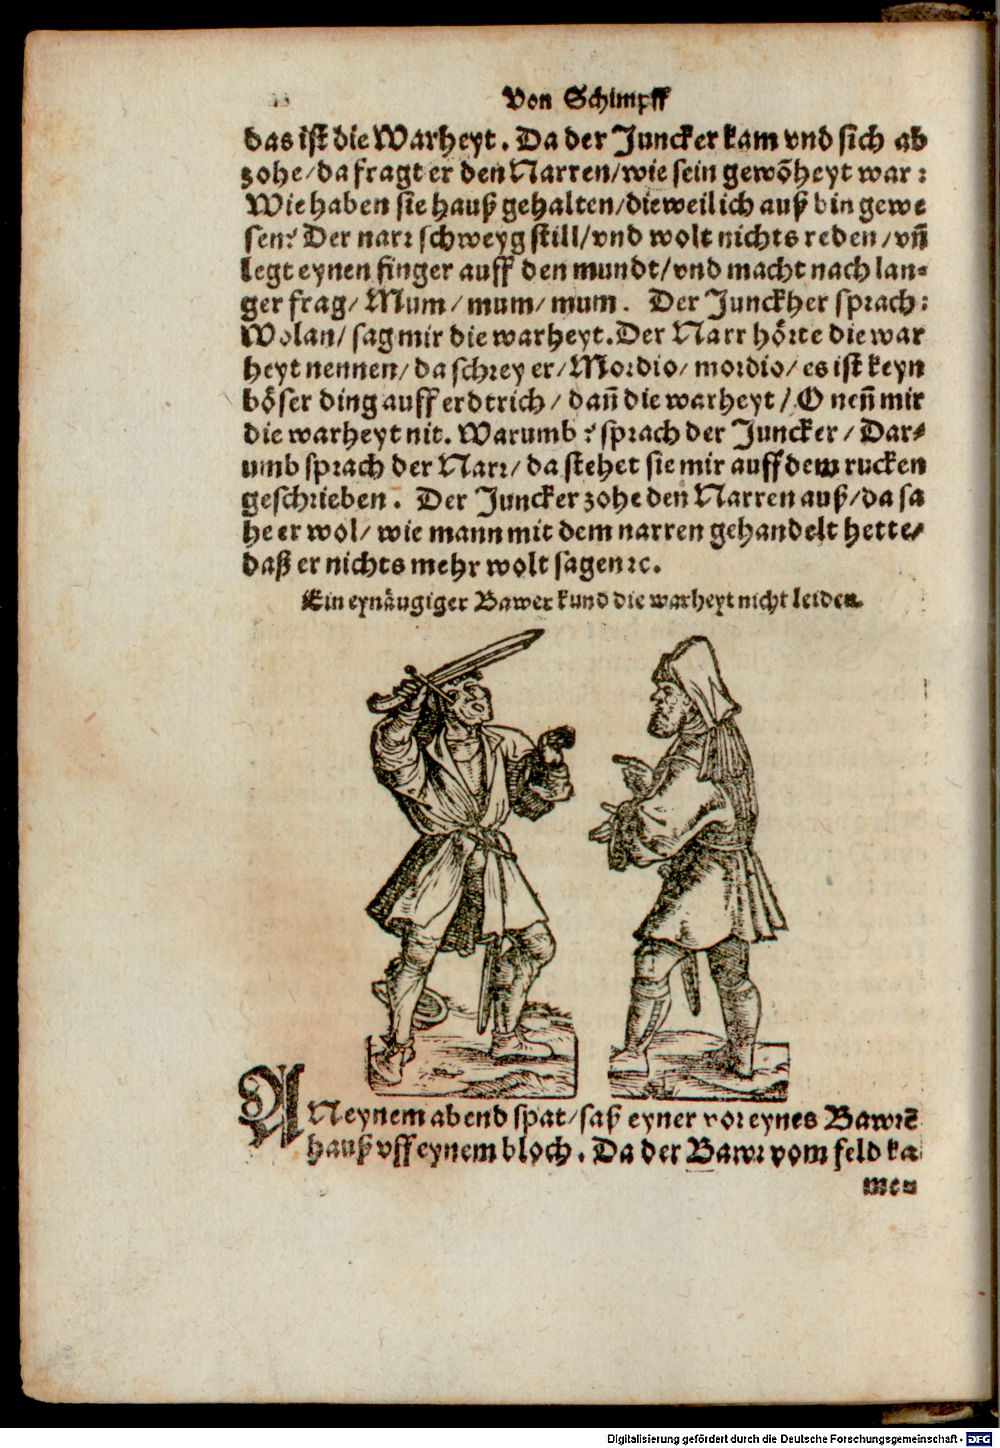 Von Schimpff
das ist die Warheyt. Da der Juncker kam vnd sich ab
zohe/da fragt er den Narren/wie sein gewõheyt war:
Wie haben sie hauß gehalten/dieweil ich auß bin gewe
sen? Der narr schweyg still/vnd wolt nichts reden/vñ
legt eynen finger auff den mundt/vnd macht nach lan-
ger frag/ Mum/ mum/ mum. Der Junckher sprach:
Wolan/ sag mir die warheyt. Der Narr hörte die war
heyt nennen/ da schrey er/ Mordio/ mordio/ es ist keyn
böser ding auff erdtrich/ dañ die warheyt/ O neñ mir
die warheyt nit. Warumb? sprach der Juncker/ Dar-
umb sprach der Narr/ da stehet sie mir auff dem rucken
geschrieben. Der Juncker zohe den Narren auß/da sa
he er wol/ wie mann mit dem narren gehandelt hette/
daß er nichts mehr wolt sagen ꝛc.
Ein eynäugiger Bawer kund die warheyt nicht leiden.
ANeynem abend spat/saß eyner vor eynes Bawrẽ
hauß vff eynem bloch. Da der Bawr vom feld ka
men
Digitalisierung gefördert durch die Deutsche Forschungsgemeinschaft - DFG